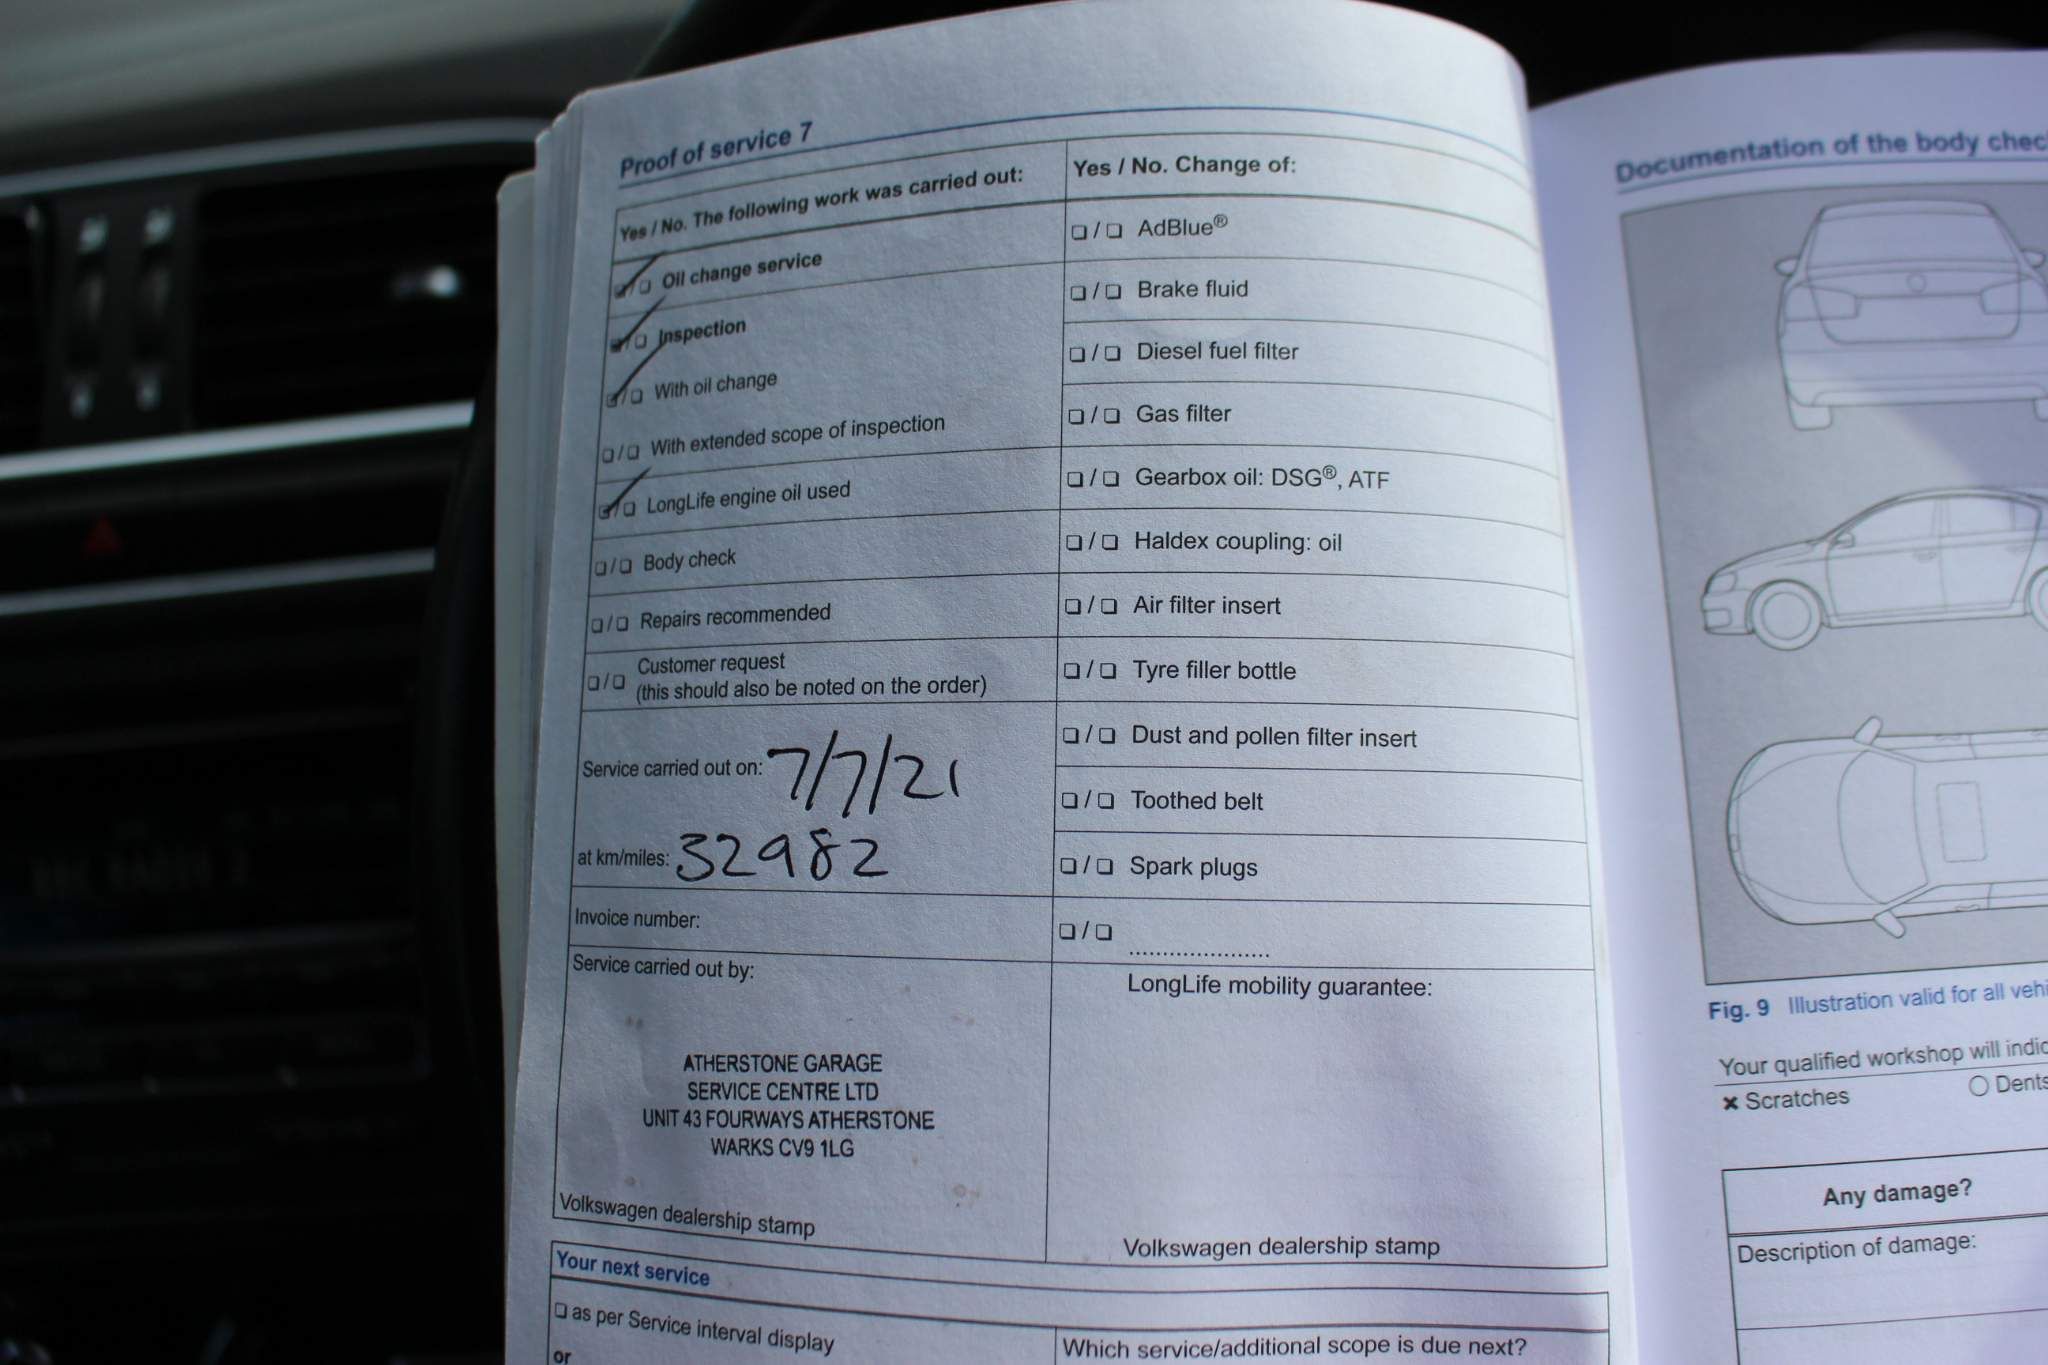 Proof of service 7
Yes / No. The following work was carried out:
❏ / ❏ Oil change service
❏ / ❏ Inspection
❏ / ❏ With oil change
❏ / ❏ With extended scope of inspection
❏ / ❏ LongLife engine oil used
❏ / ❏ Body check
❏ / ❏ Repairs recommended
❏ / ❏ Customer request
(this should also be noted on the order)
Service carried out on: 7/7/21
at km/miles: 32982
Invoice number:
Service carried out by:
ATHERSTONE GARAGE
SERVICE CENTRE LTD
UNIT 43 FOURWAYS ATHERSTONE
WARKS CV9 1LG
Volkswagen dealership stamp
Yes / No. Change of:
❏ / ❏ AdBlue®
❏ / ❏ Brake fluid
❏ / ❏ Diesel fuel filter
❏ / ❏ Gas filter
❏ / ❏ Gearbox oil: DSG®, ATF
❏ / ❏ Haldex coupling: oil
❏ / ❏ Air filter insert
❏ / ❏ Tyre filler bottle
❏ / ❏ Dust and pollen filter insert
❏ / ❏ Toothed belt
❏ / ❏ Spark plugs
❏ / ❏ ......................
LongLife mobility guarantee:
Volkswagen dealership stamp
Your next service
❏ as per Service interval display
or
Which service/additional scope is due next?
Documentation of the body chec
Fig. 9 Illustration valid for all vehi
Your qualified workshop will indic
✖ Scratches
○ Dents
Any damage?
Description of damage: